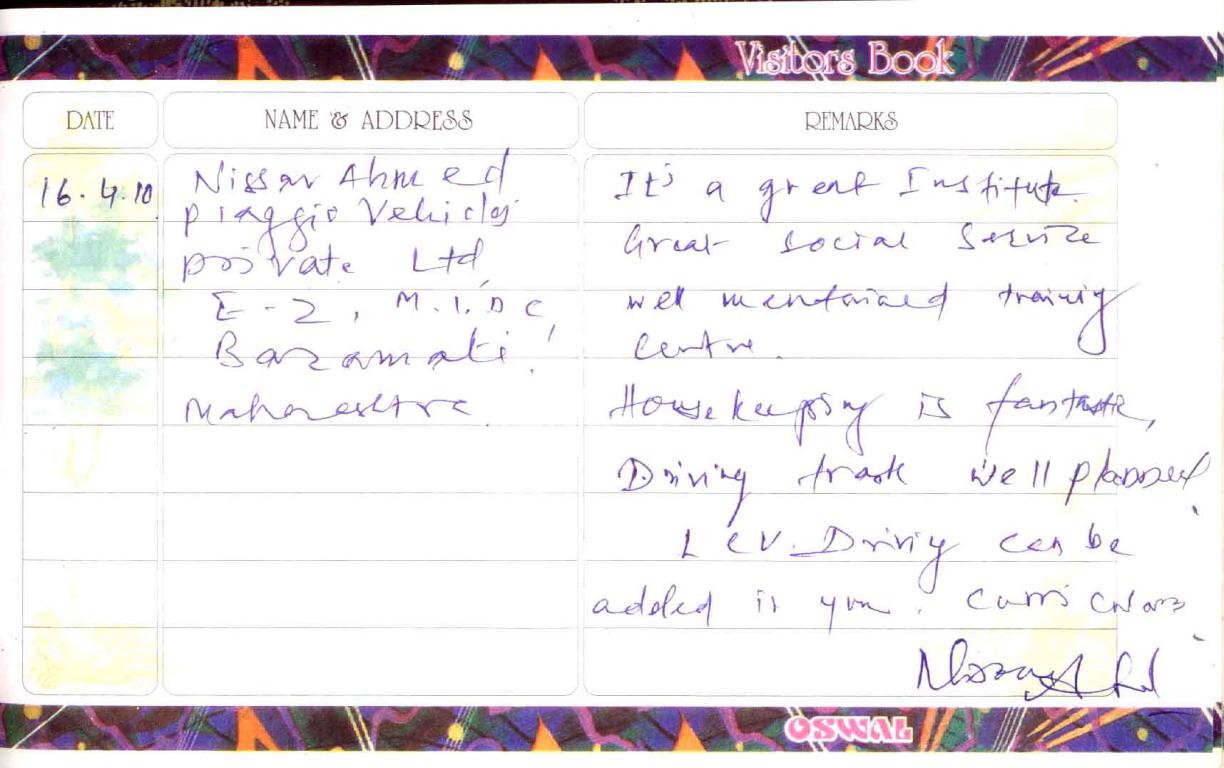 Visitors Book
DATE
NAME & ADDRESS
REMARKS
16.4.10
Nissar Ahmed
Piaggio Vehicles
private Ltd,
E-2, M.I.D.C,
Baramati,
Maharashtra
It's a great Institute.
Great social Service
well mentained training
centre.
Housekeeping is fantastic,
Driving track well planned.
LCV. Driving can be
added in your.
OSWAL